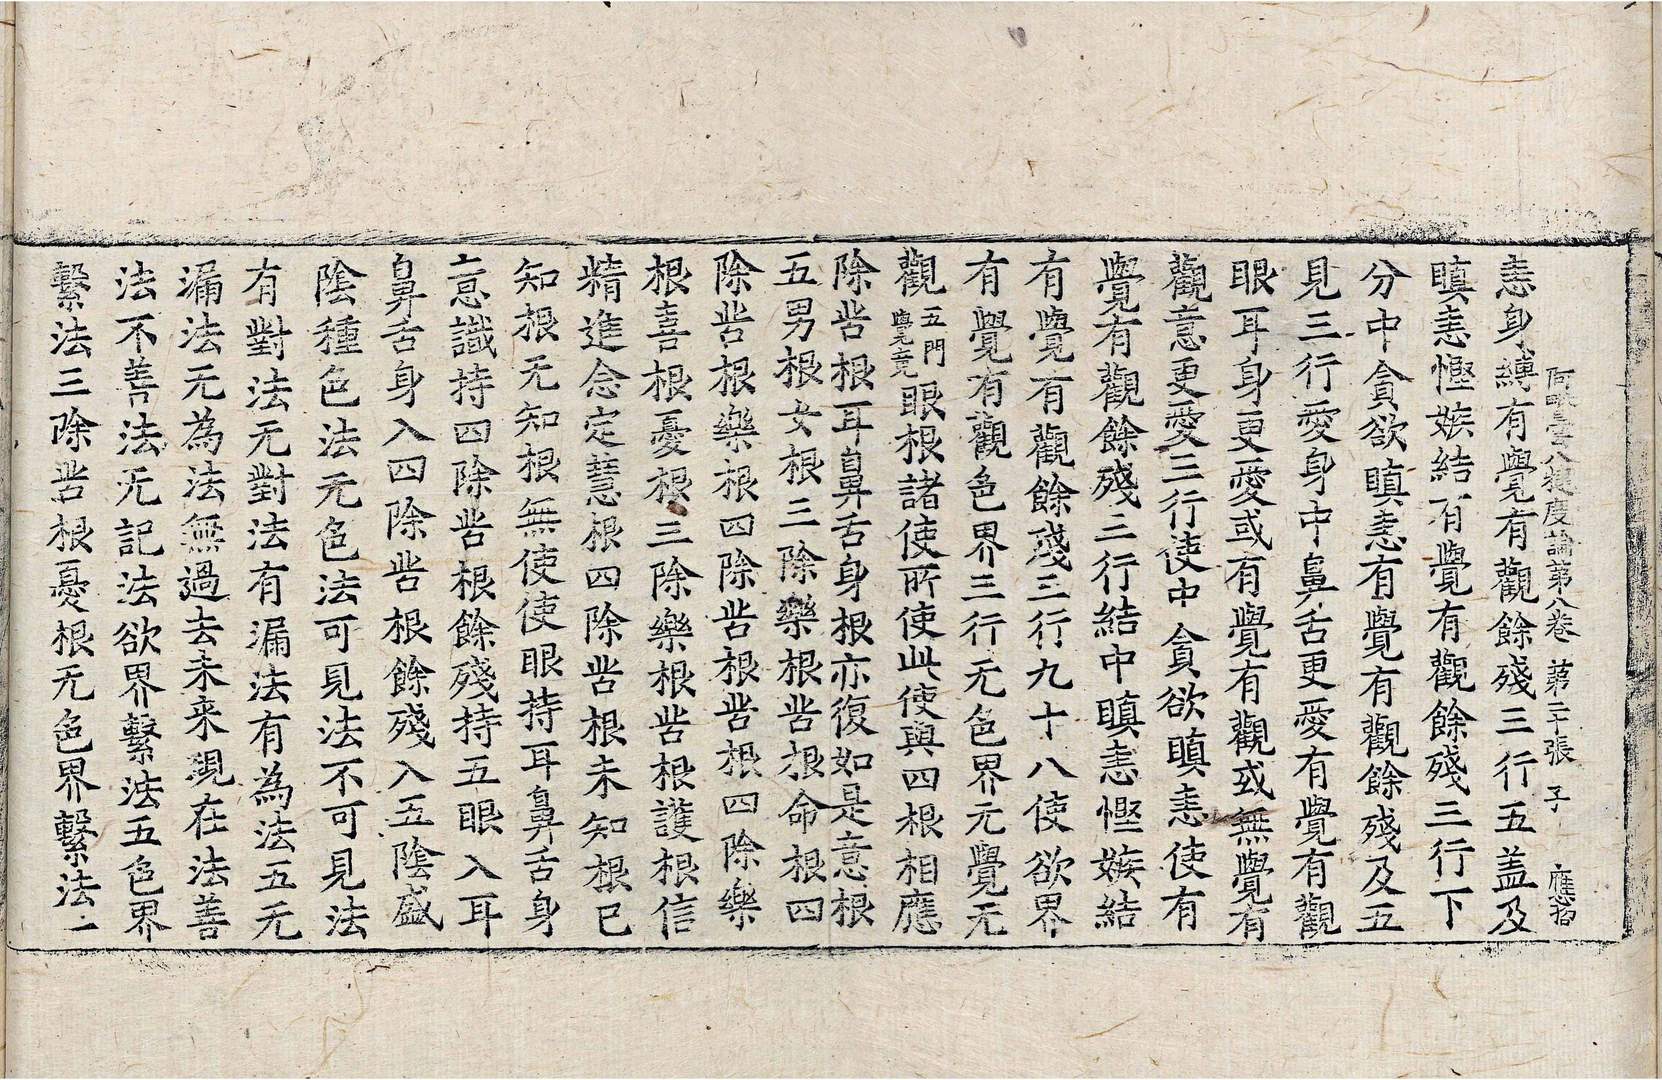 阿毗曇八揵度論第八卷 第二十張 子
恚身縛有覺有觀餘殘三行五盖及
瞋恚慳嫉結有覺有觀餘殘三行下
分中貪欲瞋恚有覺有觀餘殘及五
見三行愛身中鼻舌更愛有覺有觀
眼耳身更愛或有覺有觀或無覺有
觀意更愛三行使中貪欲瞋恚使有
覺有觀餘殘三行結中瞋恚慳嫉結
有覺有觀餘殘三行九十八使欲界
有覺有觀色界三行无色界无覺无
觀五門覺竟眼根諸使所使此使與四根相應
除苦根耳鼻舌身根亦復如是意根
五男根女根三除樂根苦根命根四
除苦根樂根四除苦根苦根四除樂
根喜根憂根三除樂根苦根護根信
精進念定慧根四除苦根未知根已
知根无知根無使使眼持耳鼻舌身
意識持四除苦根餘殘持五眼入耳
鼻舌身入四除苦根餘殘入五陰盛
陰種色法无色法可見法不可見法
有對法无對法有漏法有為法五无
漏法无為法無過去未来現在法善
法不善法无記法欲界繫法五色界
繫法三除苦根憂根无色界繫法一